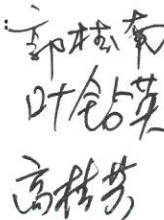 郭桂南
叶钻英
高桂芳